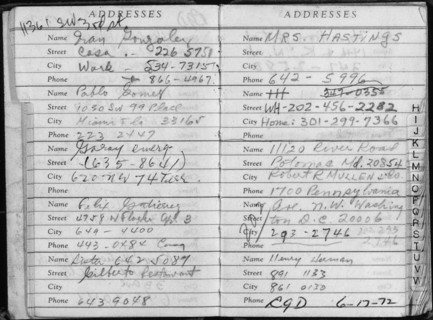 11361 SW 3rd
ADDRESSES
Name Gonzalez
Street Casa .. 226 5751
City Work - 534-7315
Phone 866-4967
Name Pablo Gomez
Street 1050 SW 99 Place
City Miami Fla 33165
Phone 223 2447
Name
Street (635-8641)
City 620 NW 74
Phone
Name Felix Gutierrez
Street
City 649-4400
Phone 443-0484
Name 642 5089
Street Gilberto Restaurant
City
Phone 643 9048
ADDRESSES
Name MRS. HASTINGS
Street
City
Phone 642-5996
Name HH 347-0355
Street WH-202-456-2282
City Home: 301-299-7366
Phone
Name 11120 River Road
Street Potomac Md. 20854
City Robert R MULLEN
Phone 1700 Pennsylvania
Name Ave. N.W. Washing
Street ton D.C. 20006
City 293-2746
Phone
Name Henry
Street 891 1133
City 861 0120
Phone 6-17-72
H
I
J
K
L
M
N
O
P
Q
R
S
T
U
V
W